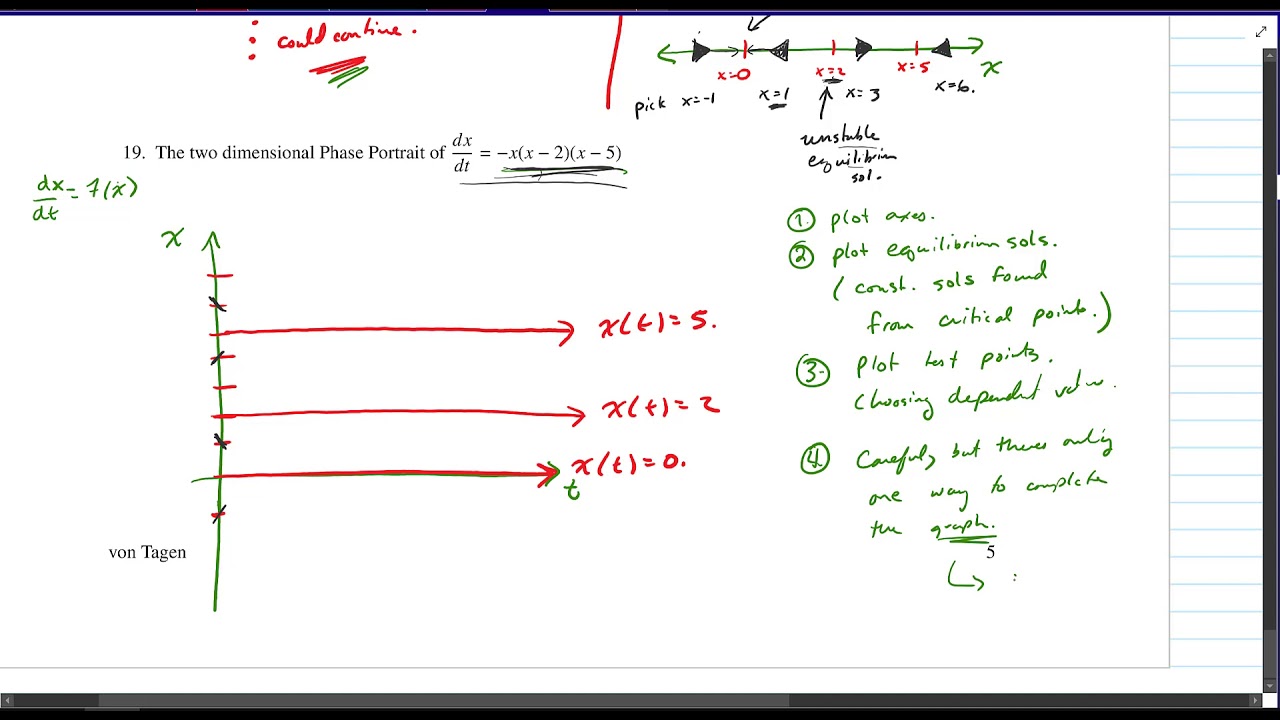 could continue.
x=0
x=2
x=5
x
pick x=-1
x=1
x=3
x=6.
unstable
equilibrium
sol.
19. The two dimensional Phase Portrait of dx/dt = −x(x − 2)(x − 5)
dx/dt = f(x)
x
x(t)=5.
x(t)=2
x(t)=0.
t
① plot axes.
② plot equilibrium sols.
(const. sols found
from critical points.)
③ Plot test points.
Choosing dependent value.
④ Careful, but theres only
one way to complete
the graph.
von Tagen
5